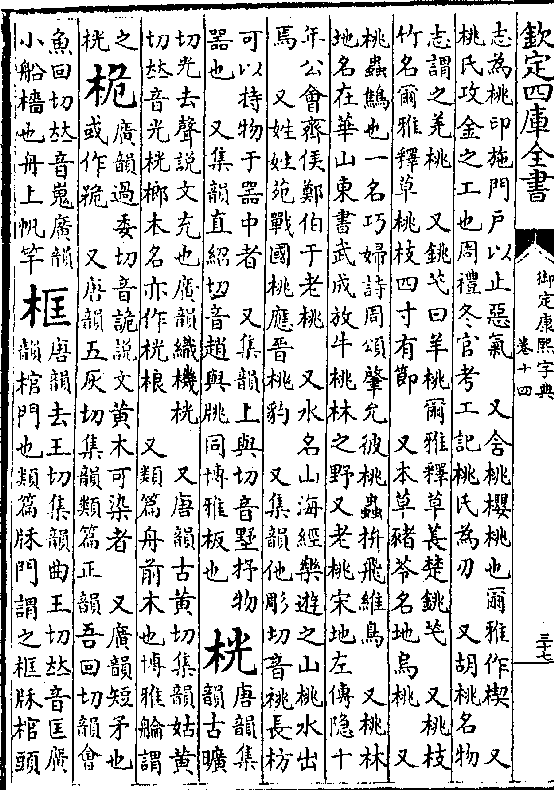 欽定四庫全書
御定康熙字典
卷十四
三十七
志為桃印施門戶以止惡氣　又含桃櫻桃也爾雅作楔　又
桃氏攻金之工也周禮冬官考工記桃氏為刃　又胡桃名物
志謂之羌桃　又銚芅曰羊桃爾雅釋草萇楚銚芅　又桃枝
竹名爾雅釋草桃枝四寸有節　又本草豬苓名地烏桃　又
桃蟲鷦也一名巧婦詩周頌肇允彼桃蟲拚飛維鳥　又桃林
地名在華山東書武成放牛桃林之野又老桃宋地左傳隱十
年公會齊侯鄭伯于老桃　又水名山海經樂遊之山桃水出
焉　又姓姓苑戰國桃應晉桃豹　又集韻他彫切音祧長枋
可以抒物于器中者　又集韻上與切音墅抒物
器也　又集韻直紹切音趙與朓同博雅板也　桄唐韻集
韻古曠
切光去聲說文充也廣韻織機桄　又唐韻古黃切集韻姑黃
切𠀤音光桄榔木名亦作桄桹　又類篇舟前木也博雅艈謂
之
桄　桅廣韻過委切音詭說文黃木可染者　又廣韻短矛也
或作䤥　又唐韻五灰切集韻類篇正韻吾回切韻會
魚回切𠀤音嵬廣韻
小船檣也舟上帆竿　框唐韻去王切集韻曲王切𠀤音匡廣
韻棺門也類篇牀門謂之框牀棺頭